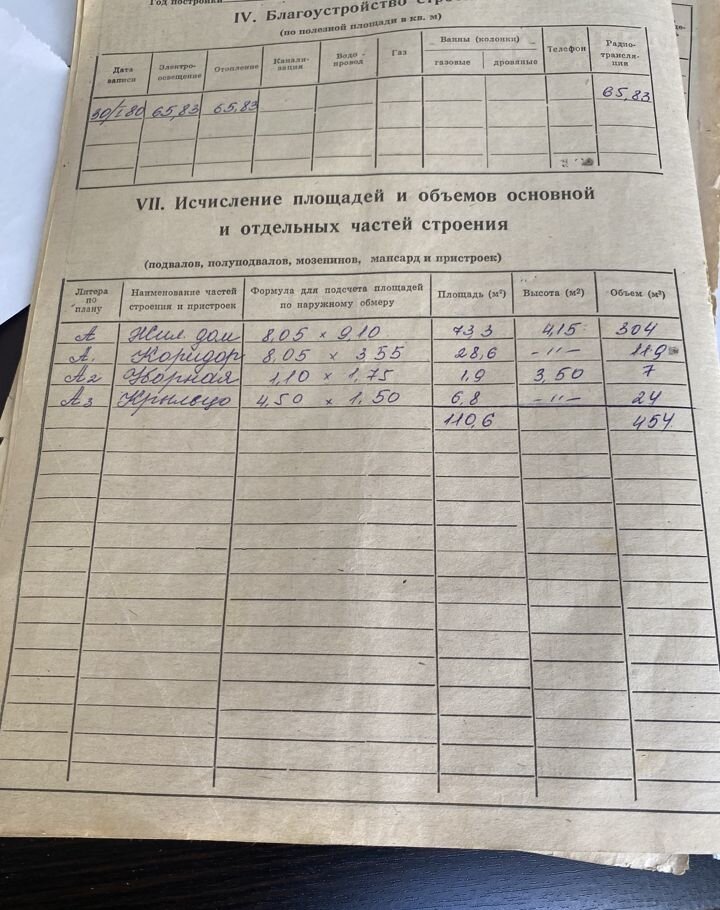 Год постройки
IV. Благоустройство
(по полезной площади в кв. м)
Дата записи | Электро-освещение | Отопление | Канали-зация | Водо-провод | Газ | Ванны (колонки) газовые | дровяные | Телефон | Радио-трансля-ция
30/I 80 | 65,83 | 65,83 | 65,83
VII. Исчисление площадей и объемов основной
и отдельных частей строения
(подвалов, полуподвалов, мозенинов, мансард и пристроек)
Литера по плану | Наименование частей строения и пристроек | Формула для подсчета площадей по наружному обмеру | Площадь (м²) | Высота (м²) | Объем (м³)
А | Жил. дом | 8,05 × 9,10 | 73,3 | 4,15 | 304
А1 | Коридор | 8,05 × 3,55 | 28,6 | -"- | 119
А2 | Уборная | 1,10 × 1,75 | 1,9 | 3,50 | 7
А3 | Крыльцо | 4,50 × 1,50 | 6,8 | -"- | 24
110,6 | 454